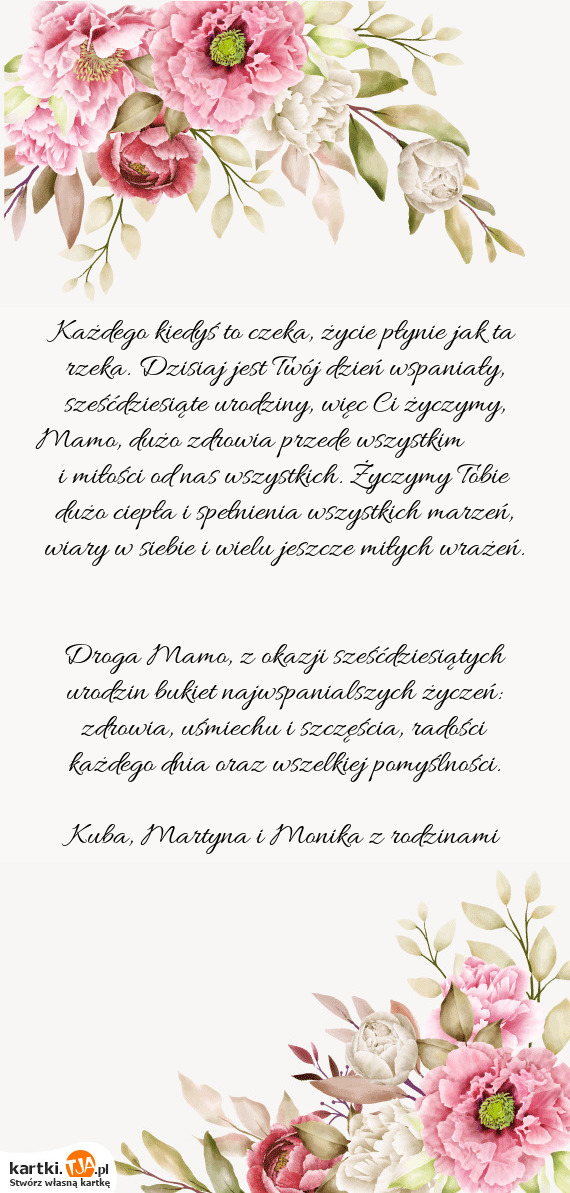 Każdego kiedyś to czeka, życie płynie jak ta
rzeka. Dzisiaj jest Twój dzień wspaniały,
sześćdziesiąte urodziny, więc Ci życzymy,
Mamo, dużo zdrowia przede wszystkim
i miłości od nas wszystkich. Życzymy Tobie
dużo ciepła i spełnienia wszystkich marzeń,
wiary w siebie i wielu jeszcze miłych wrażeń.
Droga Mamo, z okazji sześćdziesiątych
urodzin bukiet najwspanialszych życzeń:
zdrowia, uśmiechu i szczęścia, radości
każdego dnia oraz wszelkiej pomyślności.
Kuba, Martyna i Monika z rodzinami
kartki.TJA.pl
Stwórz własną kartkę